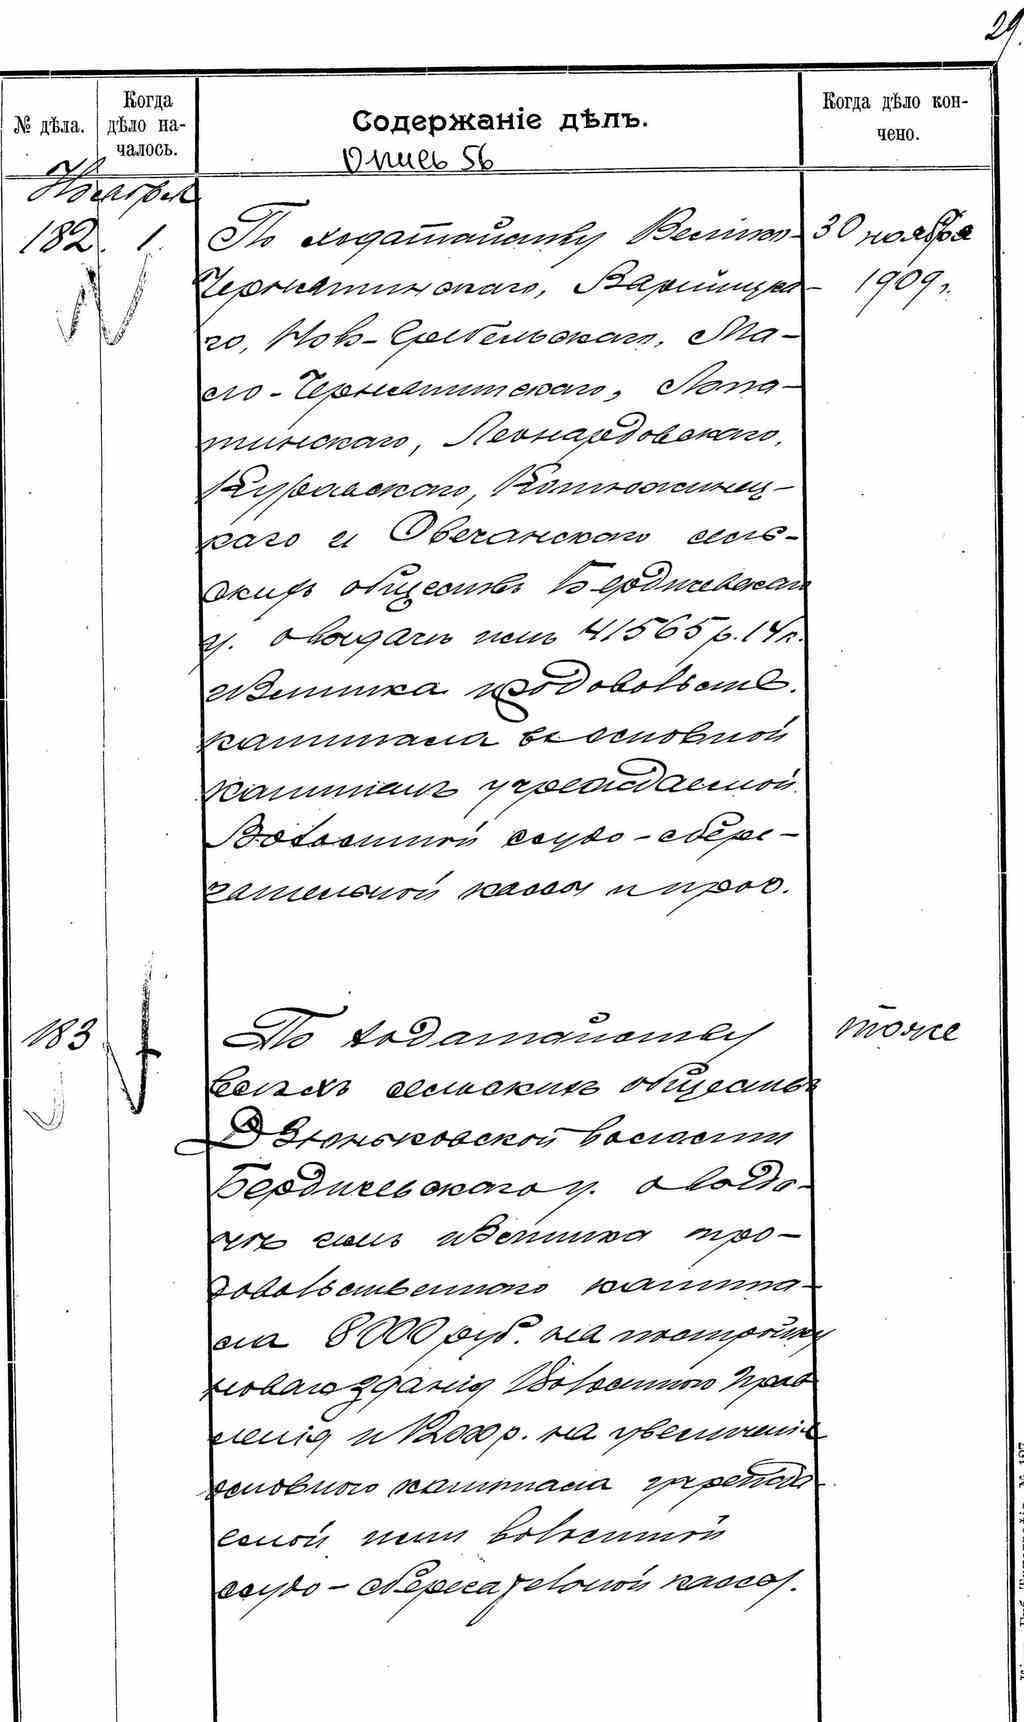 29.
№ дѣла.
Когда дѣло на-
чалось.
Содержаніе дѣлъ.
Когда дѣло кон-
чено.
Опись 56
Ноября
182. 1. По ходатайству Велико- 30 ноября
Чернятинскаго, 1909 г.
го, Нов-Гребельскаго, Ма-
ло-Чернятинскаго, Лопа-
тинскаго, Леонардовскаго,
Кумановскаго,
каго и Овечанскаго сель-
скихъ обществъ Бердичевскаго
у. о выдачѣ имъ 41565 р. 14 к.
избытка продовольств.
капитала въ основной
капиталъ учреждаемой
Волостной ссудо-сбере-
гательной кассы и проч.
183 По ходатайству тоже
всѣхъ сельскихъ обществъ
Дзюньковской волости
Бердичевскаго у. о выда-
чѣ имъ избытка про-
довольственнаго капита-
ла 8000 руб. на постройку
новаго зданія Волостного Прав
ленія и 12000 р. на увеличеніе
основного капитала учрежда-
емой ими волостной
ссудо-сберегательной кассы.